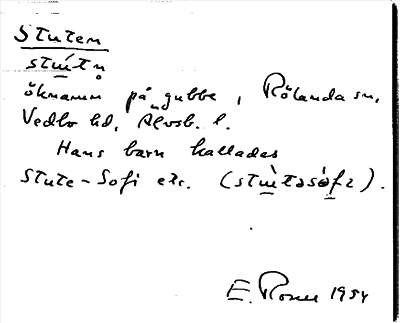 Stuten
stɯ́tn̥
öknamn på gubbe, Rölanda sn,
Vedbo hd, Älvsb. l.
Hans barn kallades
Stute-Sofi etc. (stɯ̀təsòfɪ).
E. Rosen 1954